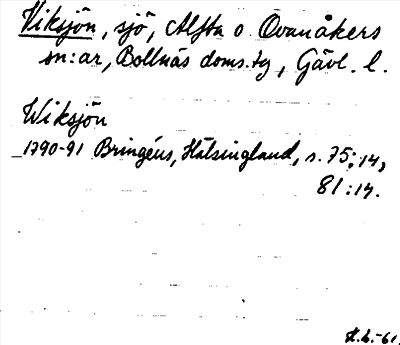 Viksjön, sjö, Alfta o Ovanåkers
sn:ar, Bollnäs doms:ty, Gävl. l.
Wiksjön
1790-91 Bringéus, Hälsingland, s. 75:14,
81:14.
H.L.-61.